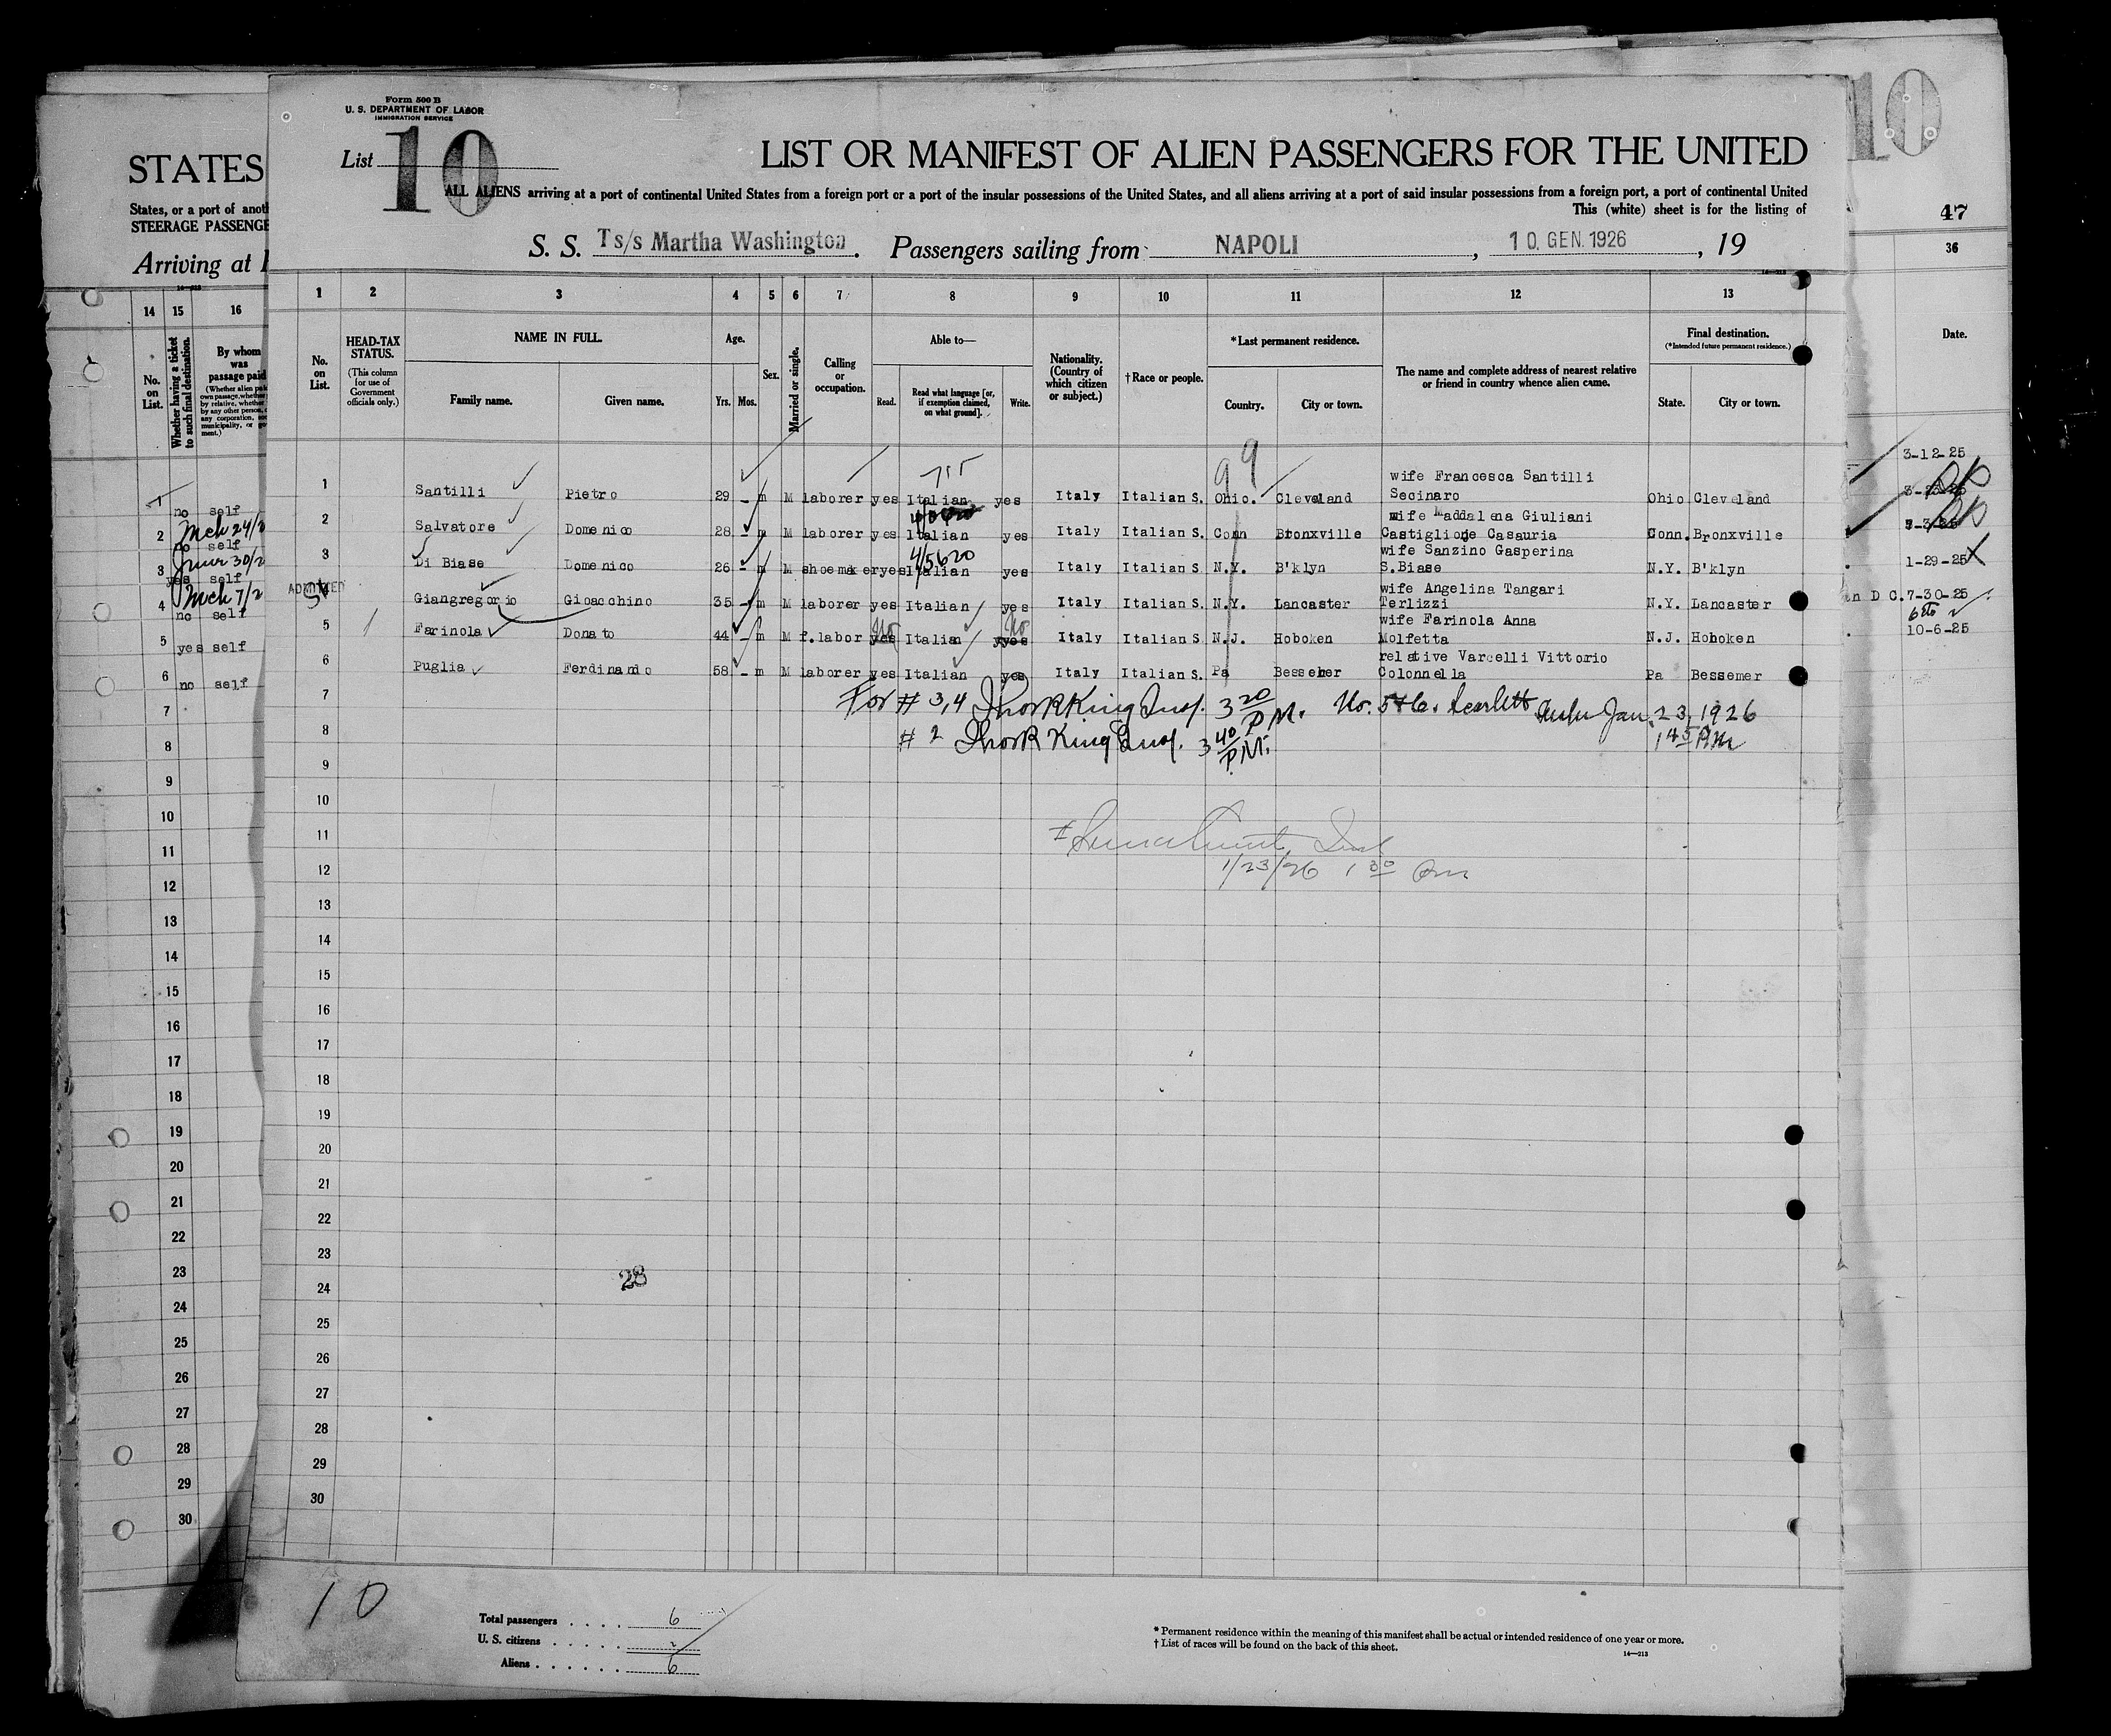 Form 500 B
U. S. DEPARTMENT OF LABOR
IMMIGRATION SERVICE
List 10
LIST OR MANIFEST OF ALIEN PASSENGERS FOR THE UNITED
ALL ALIENS arriving at a port of continental United States from a foreign port or a port of the insular possessions of the United States, and all aliens arriving at a port of said insular possessions from a foreign port, a port of continental United
This (white) sheet is for the listing of
S. S. Ts/s Martha Washington. Passengers sailing from NAPOLI, 10. GEN. 1926, 19
1 2 3 4 5 6 7 8 9 10 11 12 13
No. on List.
HEAD-TAX STATUS.
(This column for use of Government officials only.)
NAME IN FULL.
Family name. Given name.
Age.
Yrs. Mos.
Sex.
Married or single.
Calling or occupation.
Able to—
Read. Read what language [or, if exemption claimed, on what ground]. Write.
Nationality. (Country of which citizen or subject.)
†Race or people.
*Last permanent residence.
Country. City or town.
The name and complete address of nearest relative or friend in country whence alien came.
Final destination.
(*Intended future permanent residence.)
State. City or town.
99
1 Santilli Pietro 29 - m M laborer yes Italian yes Italy Italian S. Ohio. Cleveland wife Francesca Santilli Secinaro Ohio Cleveland
2 Salvatore Domenico 28 - m M laborer yes Italian yes Italy Italian S. Conn Bronxville wife Maddalena Giuliani Castiglione Casauria Conn. Bronxville
4/5620
3 Di Biase Domenico 26 - m M shoemaker yes Italian yes Italy Italian S. N.Y. B'klyn wife Sanzino Gasperina S.Biase N.Y. B'klyn
ADMITTED
4 Giangregorio Gioacchino 35 - m M laborer yes Italian yes Italy Italian S. N.Y. Lancaster wife Angelina Tangari Terlizzi N.Y. Lancaster
5 Farinola Donato 44 - m M f.labor yes No Italian yes No Italy Italian S. N.J. Hoboken wife Farinola Anna Molfetta N.J. Hoboken
6 Puglia Ferdinando 58 - m M laborer yes Italian yes Italy Italian S. Pa Bessemer relative Varcelli Vittorio Colonnella Pa Bessemer
7 For # 3,4 King Insp. 3 20 P.M. No. 5+6. Scarlett Jan. 23, 1926
8 # 2 King Insp. 3 40 P.M. 1 45 PM
9
10
11
12 1/23/26 1 30 Pm
13
14
15
16
17
18
19
20
21
22
23
28
24
25
26
27
28
29
30
10
Total passengers . . . . 6
U. S. citizens . . . . .
Aliens . . . . . . 6
* Permanent residence within the meaning of this manifest shall be actual or intended residence of one year or more.
† List of races will be found on the back of this sheet.
14—213
STATES
States, or a port of anoth
STEERAGE PASSENGE
Arriving at
14 15 16
No. on List.
Whether having a ticket to such final destination.
By whom was passage paid
1 no self
2 Mch 24/2 no self
3 June 30/2 yes self
4 Mch 7/2 no self
5 yes self
6 no self
7
8
9
10
11
12
13
14
15
16
17
18
19
20
21
22
23
24
25
26
27
28
29
30
10
47
36
Date.
3-12-25
1-29-25
n D C. 7-30-25
10-6-25